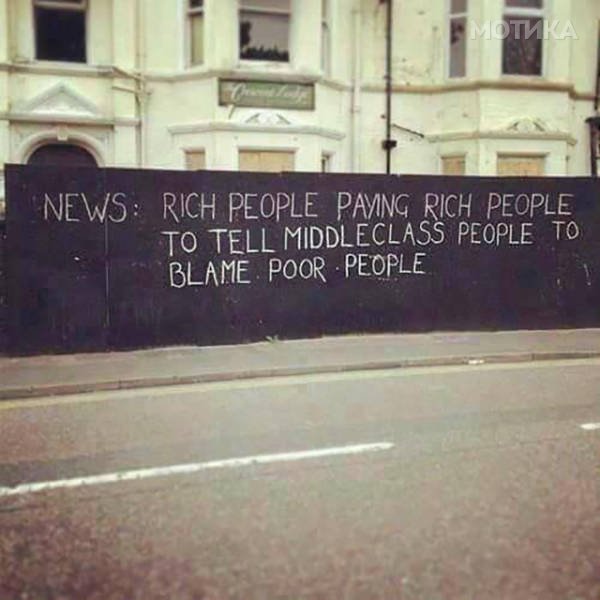 МОТИКА
Crescent Lodge
NEWS: RICH PEOPLE PAYING RICH PEOPLE
TO TELL MIDDLECLASS PEOPLE TO
BLAME POOR PEOPLE